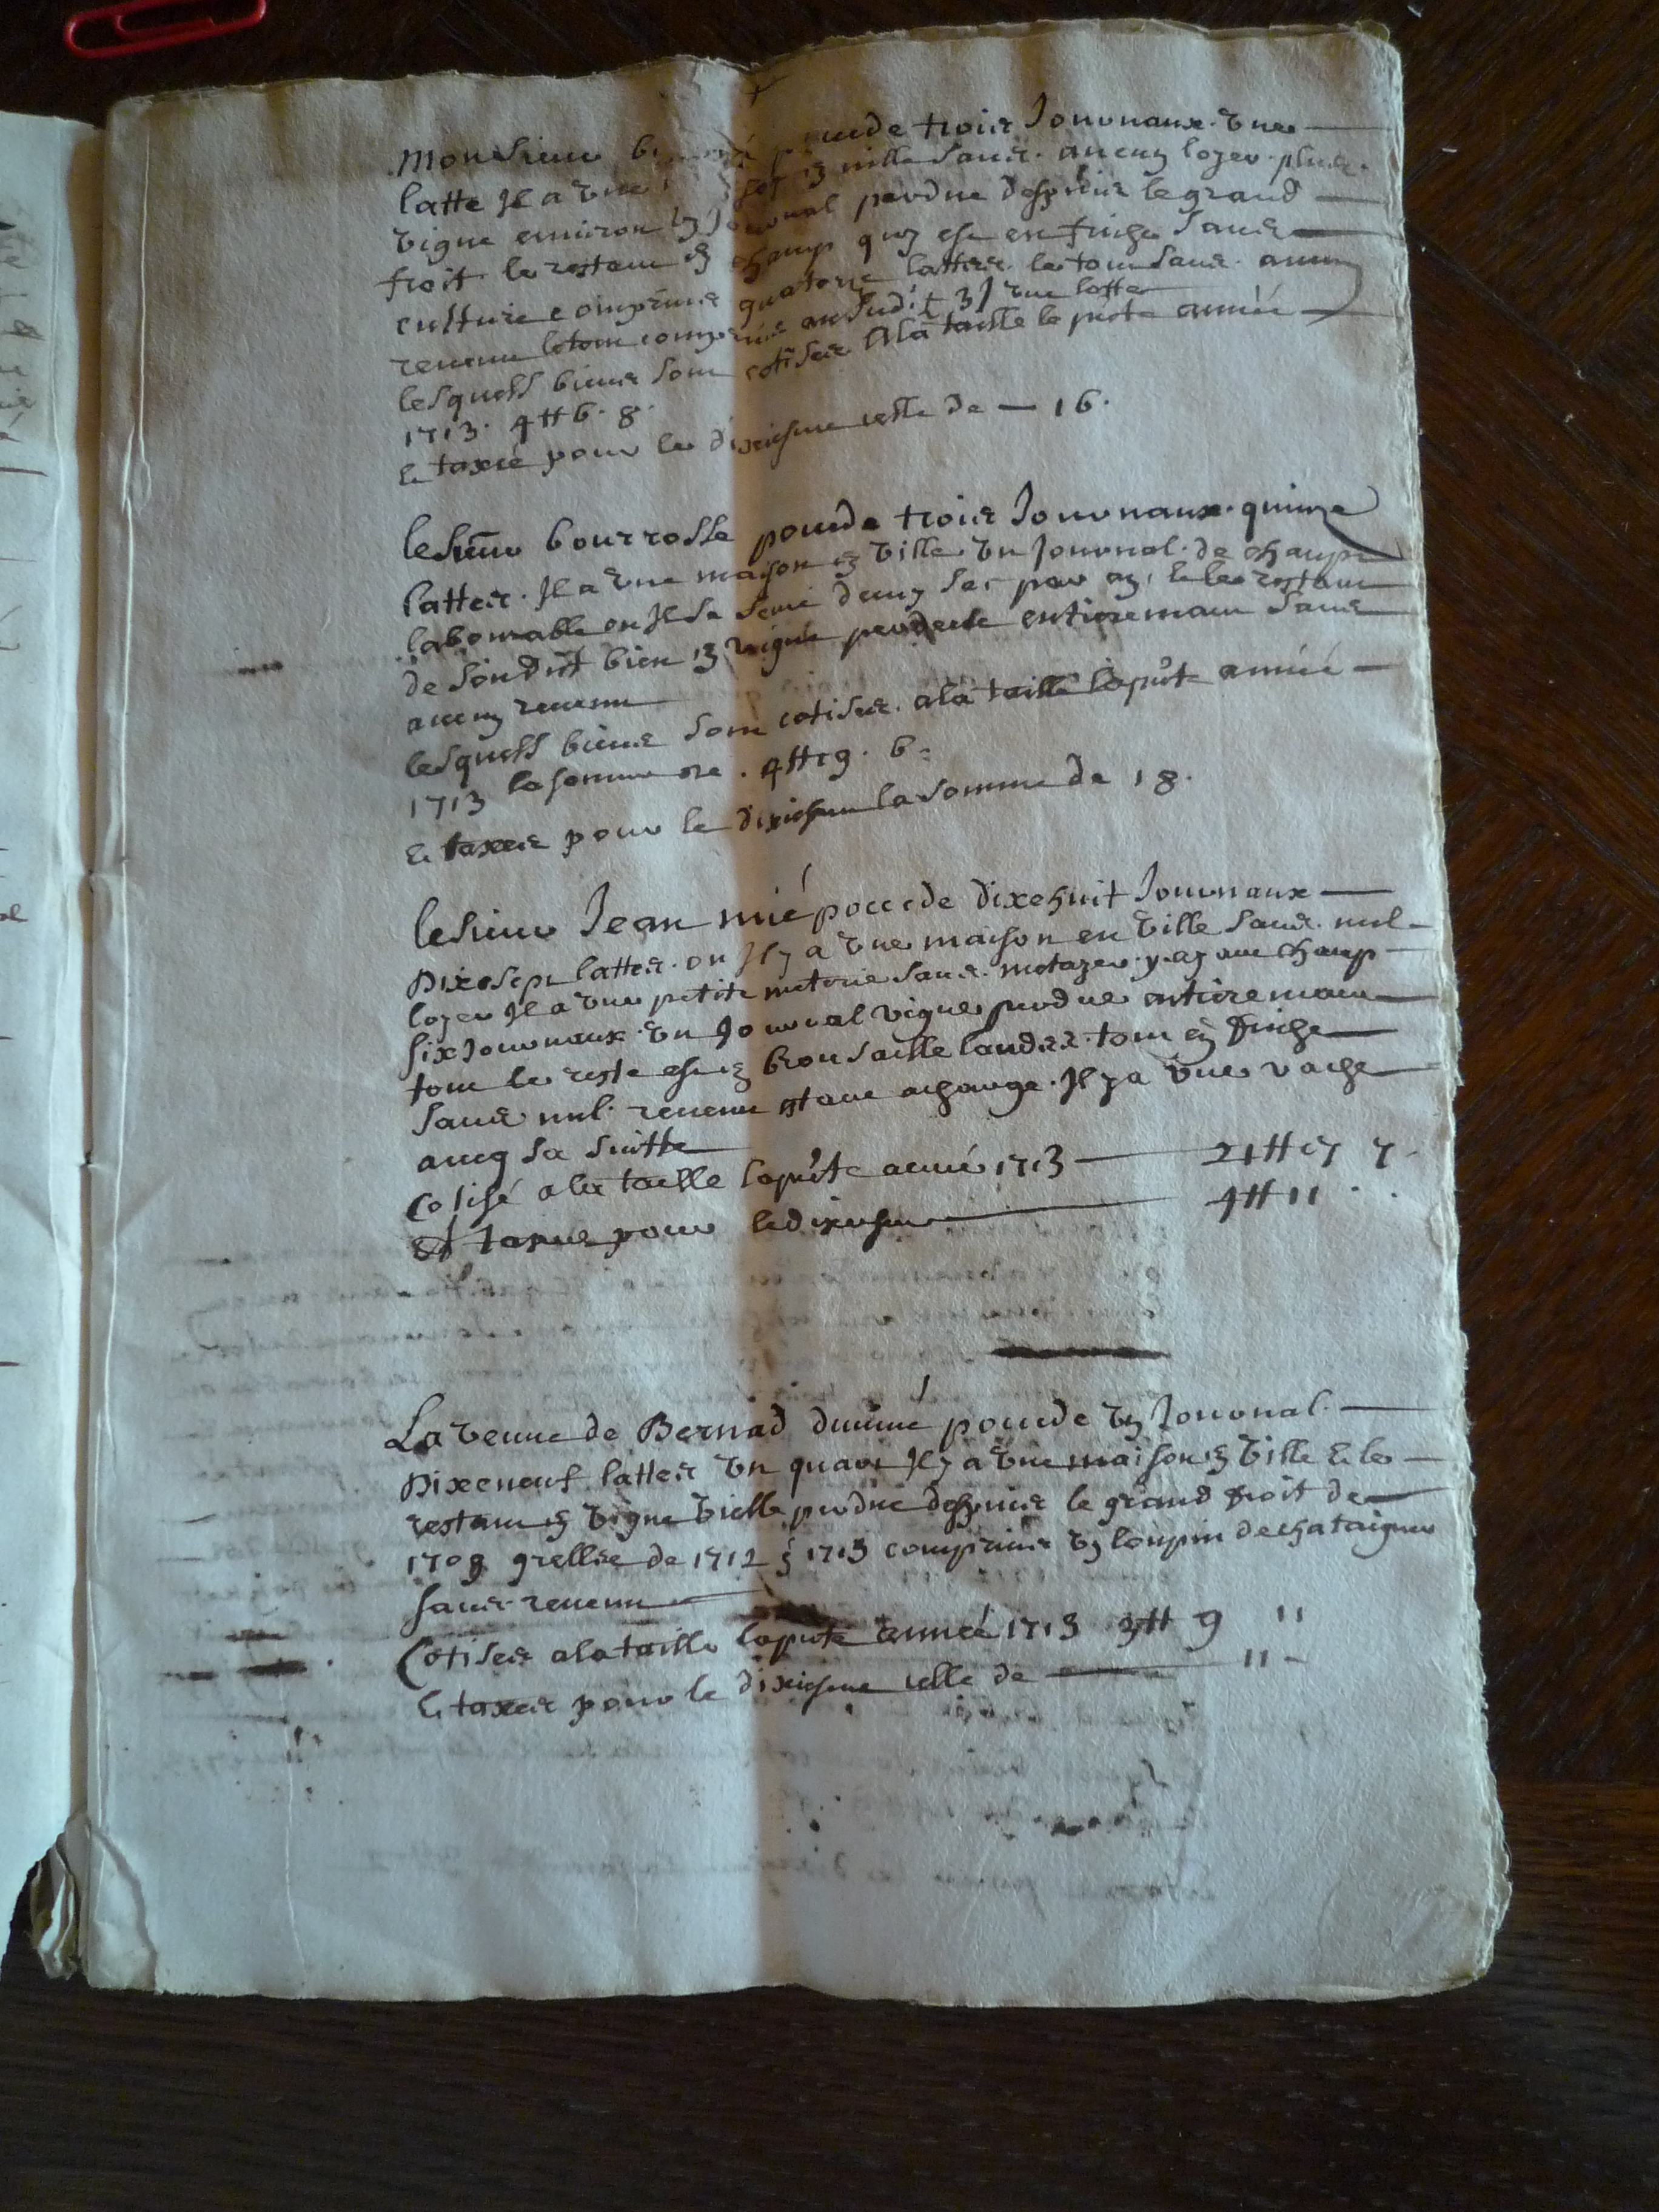 Monsieur pocede trois Journaux. Une
latte Il a une en ville sans. aucun loyer. plus.
vigne environ un Journal perdue despuis le grand
froit le restant en champ quy est en friche sans
culture comprins quatorze lattes. le tout sans. aucun
revenu le tout comprins audit 3 J une latte
lesquels biens sont cotises A la taille la pnte année
1713. 4 ₶ 6. 8.
et taxcé pour le dixiesme celle de — 16.
lesieur bourrosse pocede trois Journaux. quinze
lattes. Il a une maison en ville. un Journal. de champs
labourable ou Il se seme deux sacs par an, et le restant
de son dit bien en vigne perdeue entieremant sans
aucun revenu
lesquels biens sont cotises. a la taille la pnte année
1713 la somme de . 4 ₶ 19. 6
et taxces pour le dixiesme la somme de 18.
lesieur Jean mié pocede dixehuit Journaux
Dixesept lattes. ou Il y a une maison en ville sans. nul
loyer Il a une petite meterie sans. metayer. y ayant champ
six Journaux. un Journal vigne perdue entieremant
tout le reste est en brousaille landes. tout en friche
sans nul. revenu estant a charge. Il y a une vache
aveq sa suitte
Cotisé a la taille la pnte année 1713 — 21 ₶ 17 7.
Et taxces pour le dixiesme — 4 ₶ 11 . .
La veuve de Bernad dumé pocede un Journal.
Dixeneuf lattes un quart Il y a une maison en ville et le
restant en vigne vielle perdue despuis le grand froit de
1709 grellée de 1712 & 1713 comprins un loupin de chataignes
sans revenu
Cotises a la taille la pnte année 1713 3 ₶ 9 "
et taxces pour le dixiesme celle de — 11 -